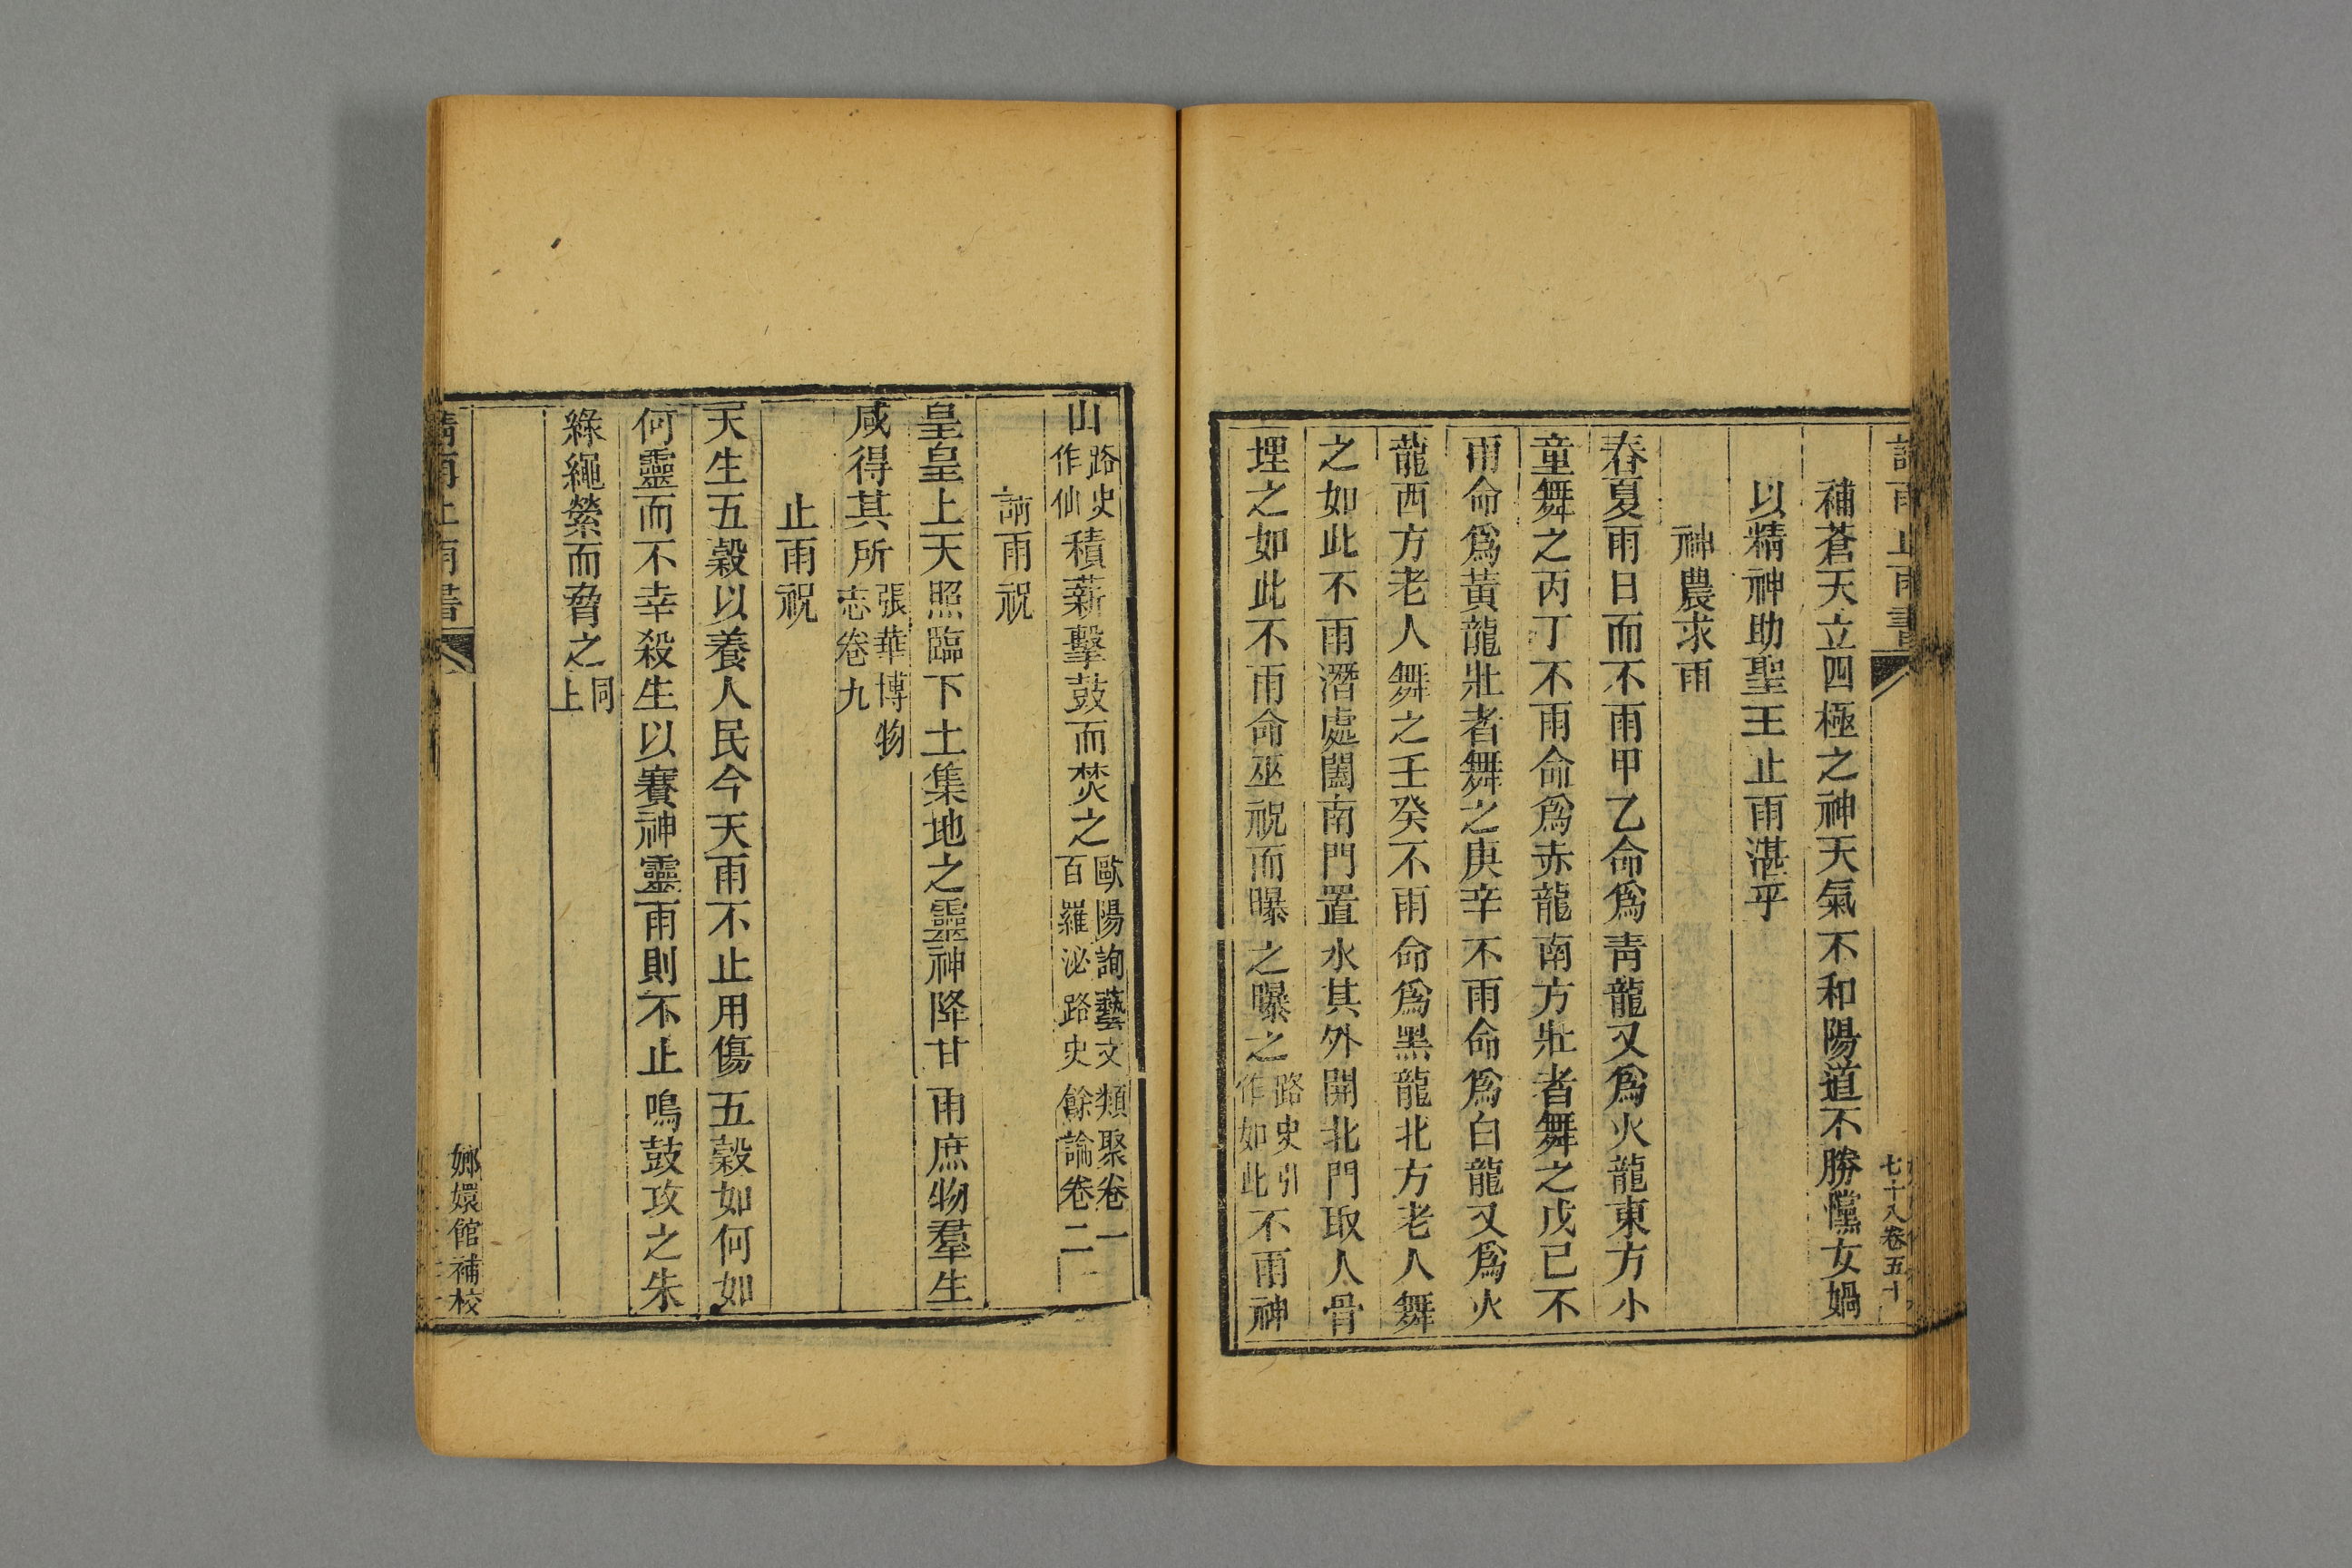 請雨止雨書
七十八卷五十
補蒼天立四極之神天氣不和陽道不勝儻女媧
以精神助聖王止雨湛乎
神農求雨
春夏雨日而不雨甲乙命爲靑龍又爲火龍東方小
童舞之丙丁不雨命爲赤龍南方壯者舞之戊己不
雨命爲黃龍壯者舞之庚辛不雨命爲白龍又爲火
龍西方老人舞之壬癸不雨命爲黑龍北方老人舞
之如此不雨潛處闔南門置水其外開北門取人骨
埋之如此不雨命巫祝而曝之曝之路史引作如此不雨神
山路史作仙積薪擊鼓而焚之歐陽詢藝文類聚卷一百羅泌路史餘論卷二
請雨祝
皇皇上天照臨下土集地之靈神降甘雨庶物羣生
咸得其所張華博物志卷九
止雨祝
天生五穀以養人民今天雨不止用傷五穀如何如
何靈而不幸殺生以賽神靈雨則不止鳴鼓攻之朱
綠繩縈而脅之同上
請雨止雨書
嫏嬛館補校